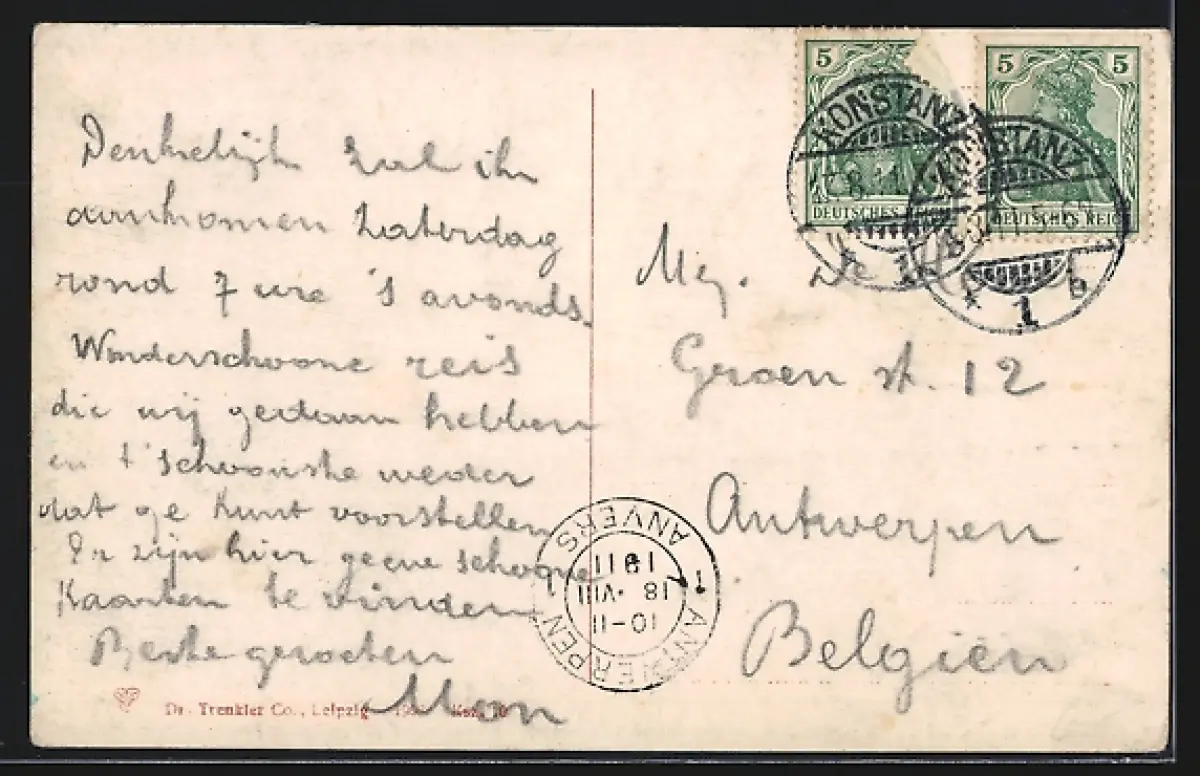 Denkelijk zal ik
aankomen Zaterdag
rond 7 ure 's avonds.
Wonderschoone reis
die wij gedaan hebben
en t'schoonste weder
dat ge kunt voorstellen
Er zijn hier geene schoone
Kaarten te vinden
Beste groeten
Mon
Dr. Trenkler Co., Leipzig
5
5 5
DEUTSCHES REICH
DEUTSCHES REICH
KONSTANZ
KONSTANZ
* 1 b
Mej. De
Groen st. 12
Antwerpen
Belgien
ANTWERPEN
10-11
18·VIII
1911
ANVERS